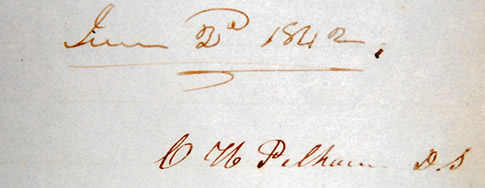 June 2d 1842.
C H Pelham D.S